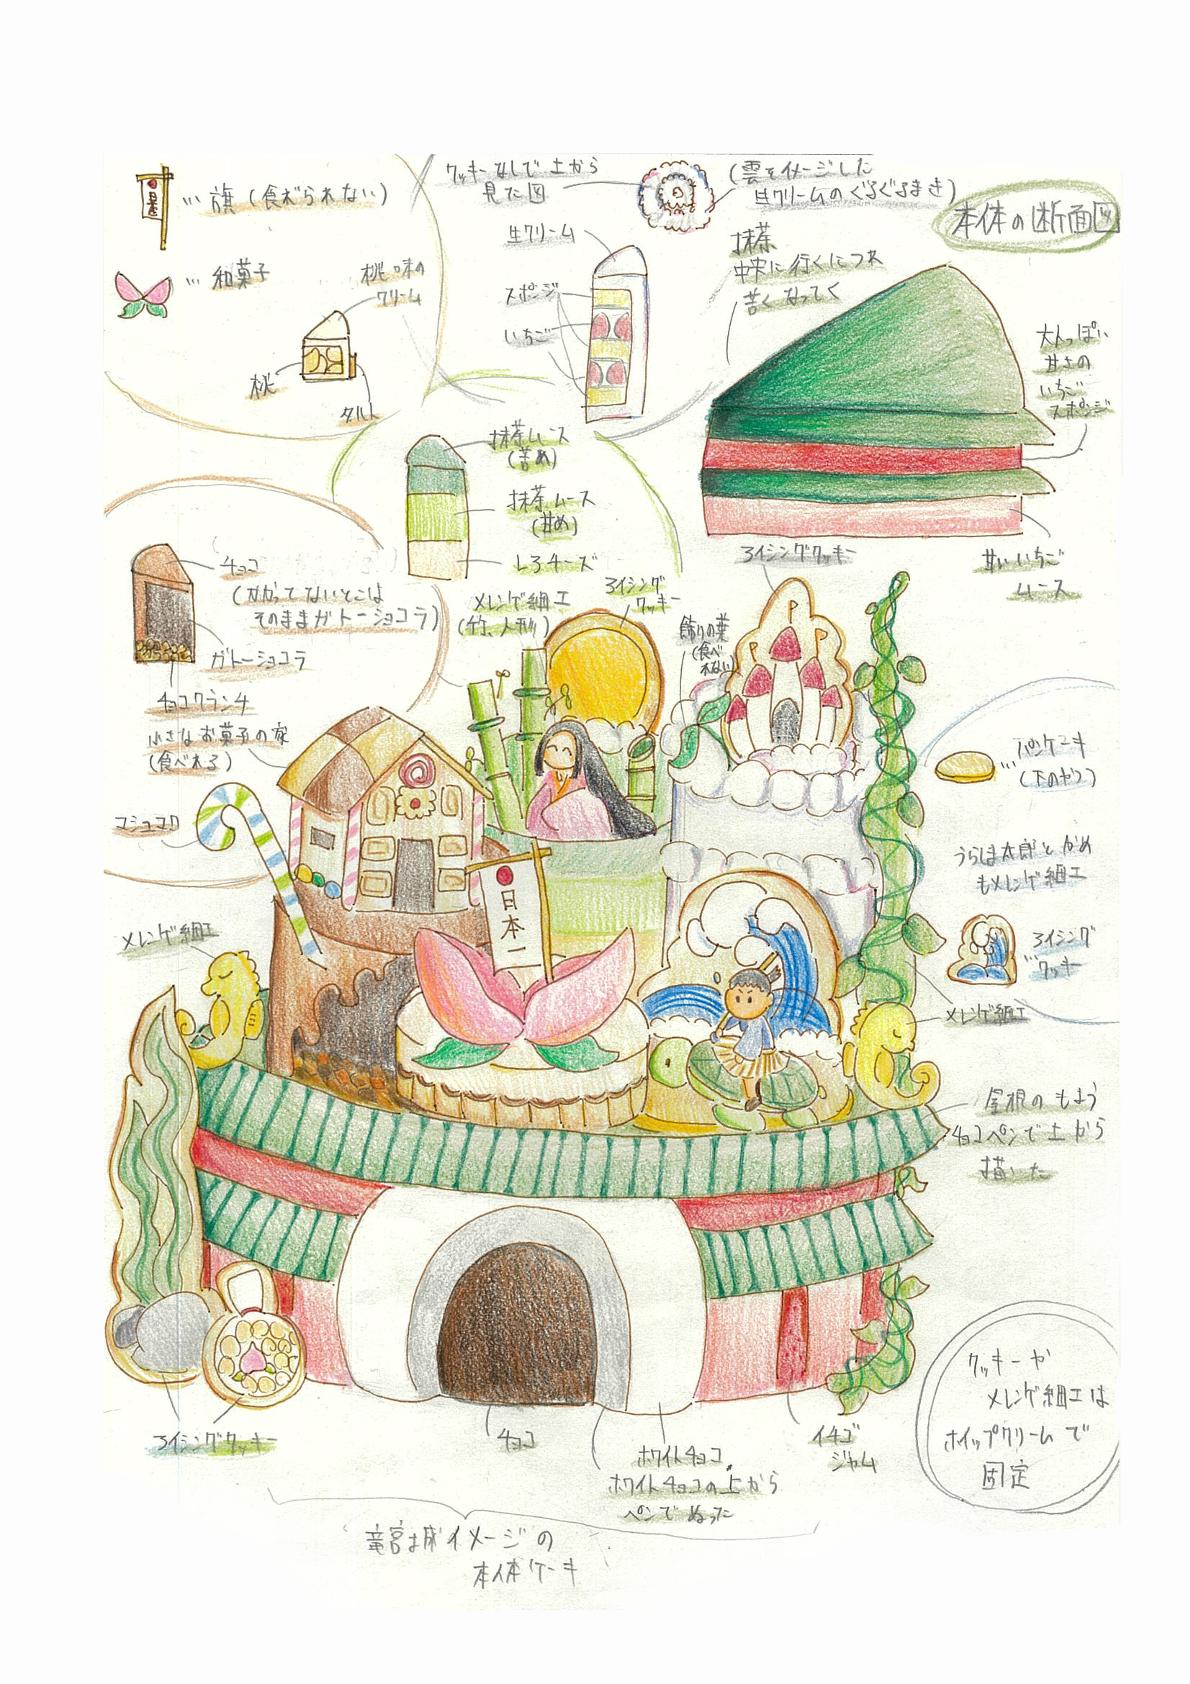 日本一
… 旗 (食べられない)
… 和菓子
桃味の
クリーム
桃
タルト
クッキーなしで上から
見た図
(雲をイメージした
生クリームのぐるぐるまき)
生クリーム
スポンジ
いちご
本体の断面図
抹茶
中央に行くにつれ
苦くなってく
大人っぽい
甘さの
いちご
スポンジ
甘いいちご
ムース
抹茶ムース
(苦め)
抹茶ムース
(甘め)
レアチーズ
チョコ
(かかってないとこは
そのままガトーショコラ)
ガトーショコラ
チョコクランチ
小さなお菓子の家
(食べれる)
メレンゲ細工
(竹、人形)
アイシング
クッキー
アイシングクッキー
飾りの葉
(食べ
れない)
… パンケーキ
(下のやつ)
うらしま太郎とかめ
もメレンゲ細工
… アイシング
クッキー
メレンゲ細工
メレンゲ細工
日本一
屋根のもよう
チョコペンで上から
描いた
クッキーや
メレンゲ細工は
ホイップクリームで
固定
アイシングクッキー
チョコ
ホワイトチョコ
ホワイトチョコの上から
ペンでぬった
イチゴ
ジャム
竜宮城イメージの
本体ケーキ